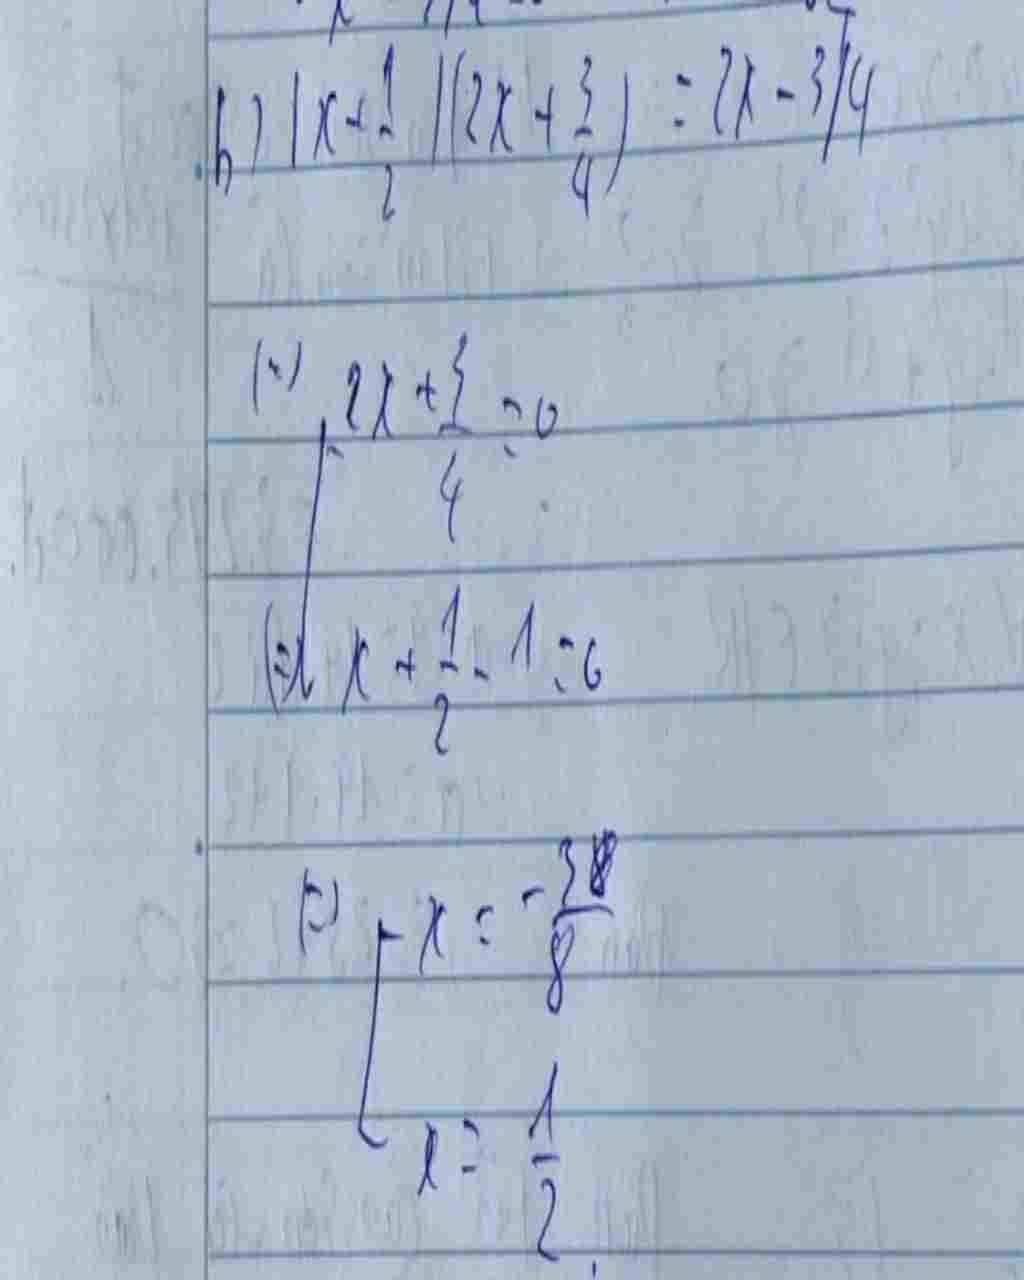 b) |x + 1/2|(2x + 3/4) = 2x - 3/4
(=) [ 2x + 3/4 = 0
(=) x + 1/2 - 1 = 0
(=) [ x = -3/8
x = 1/2